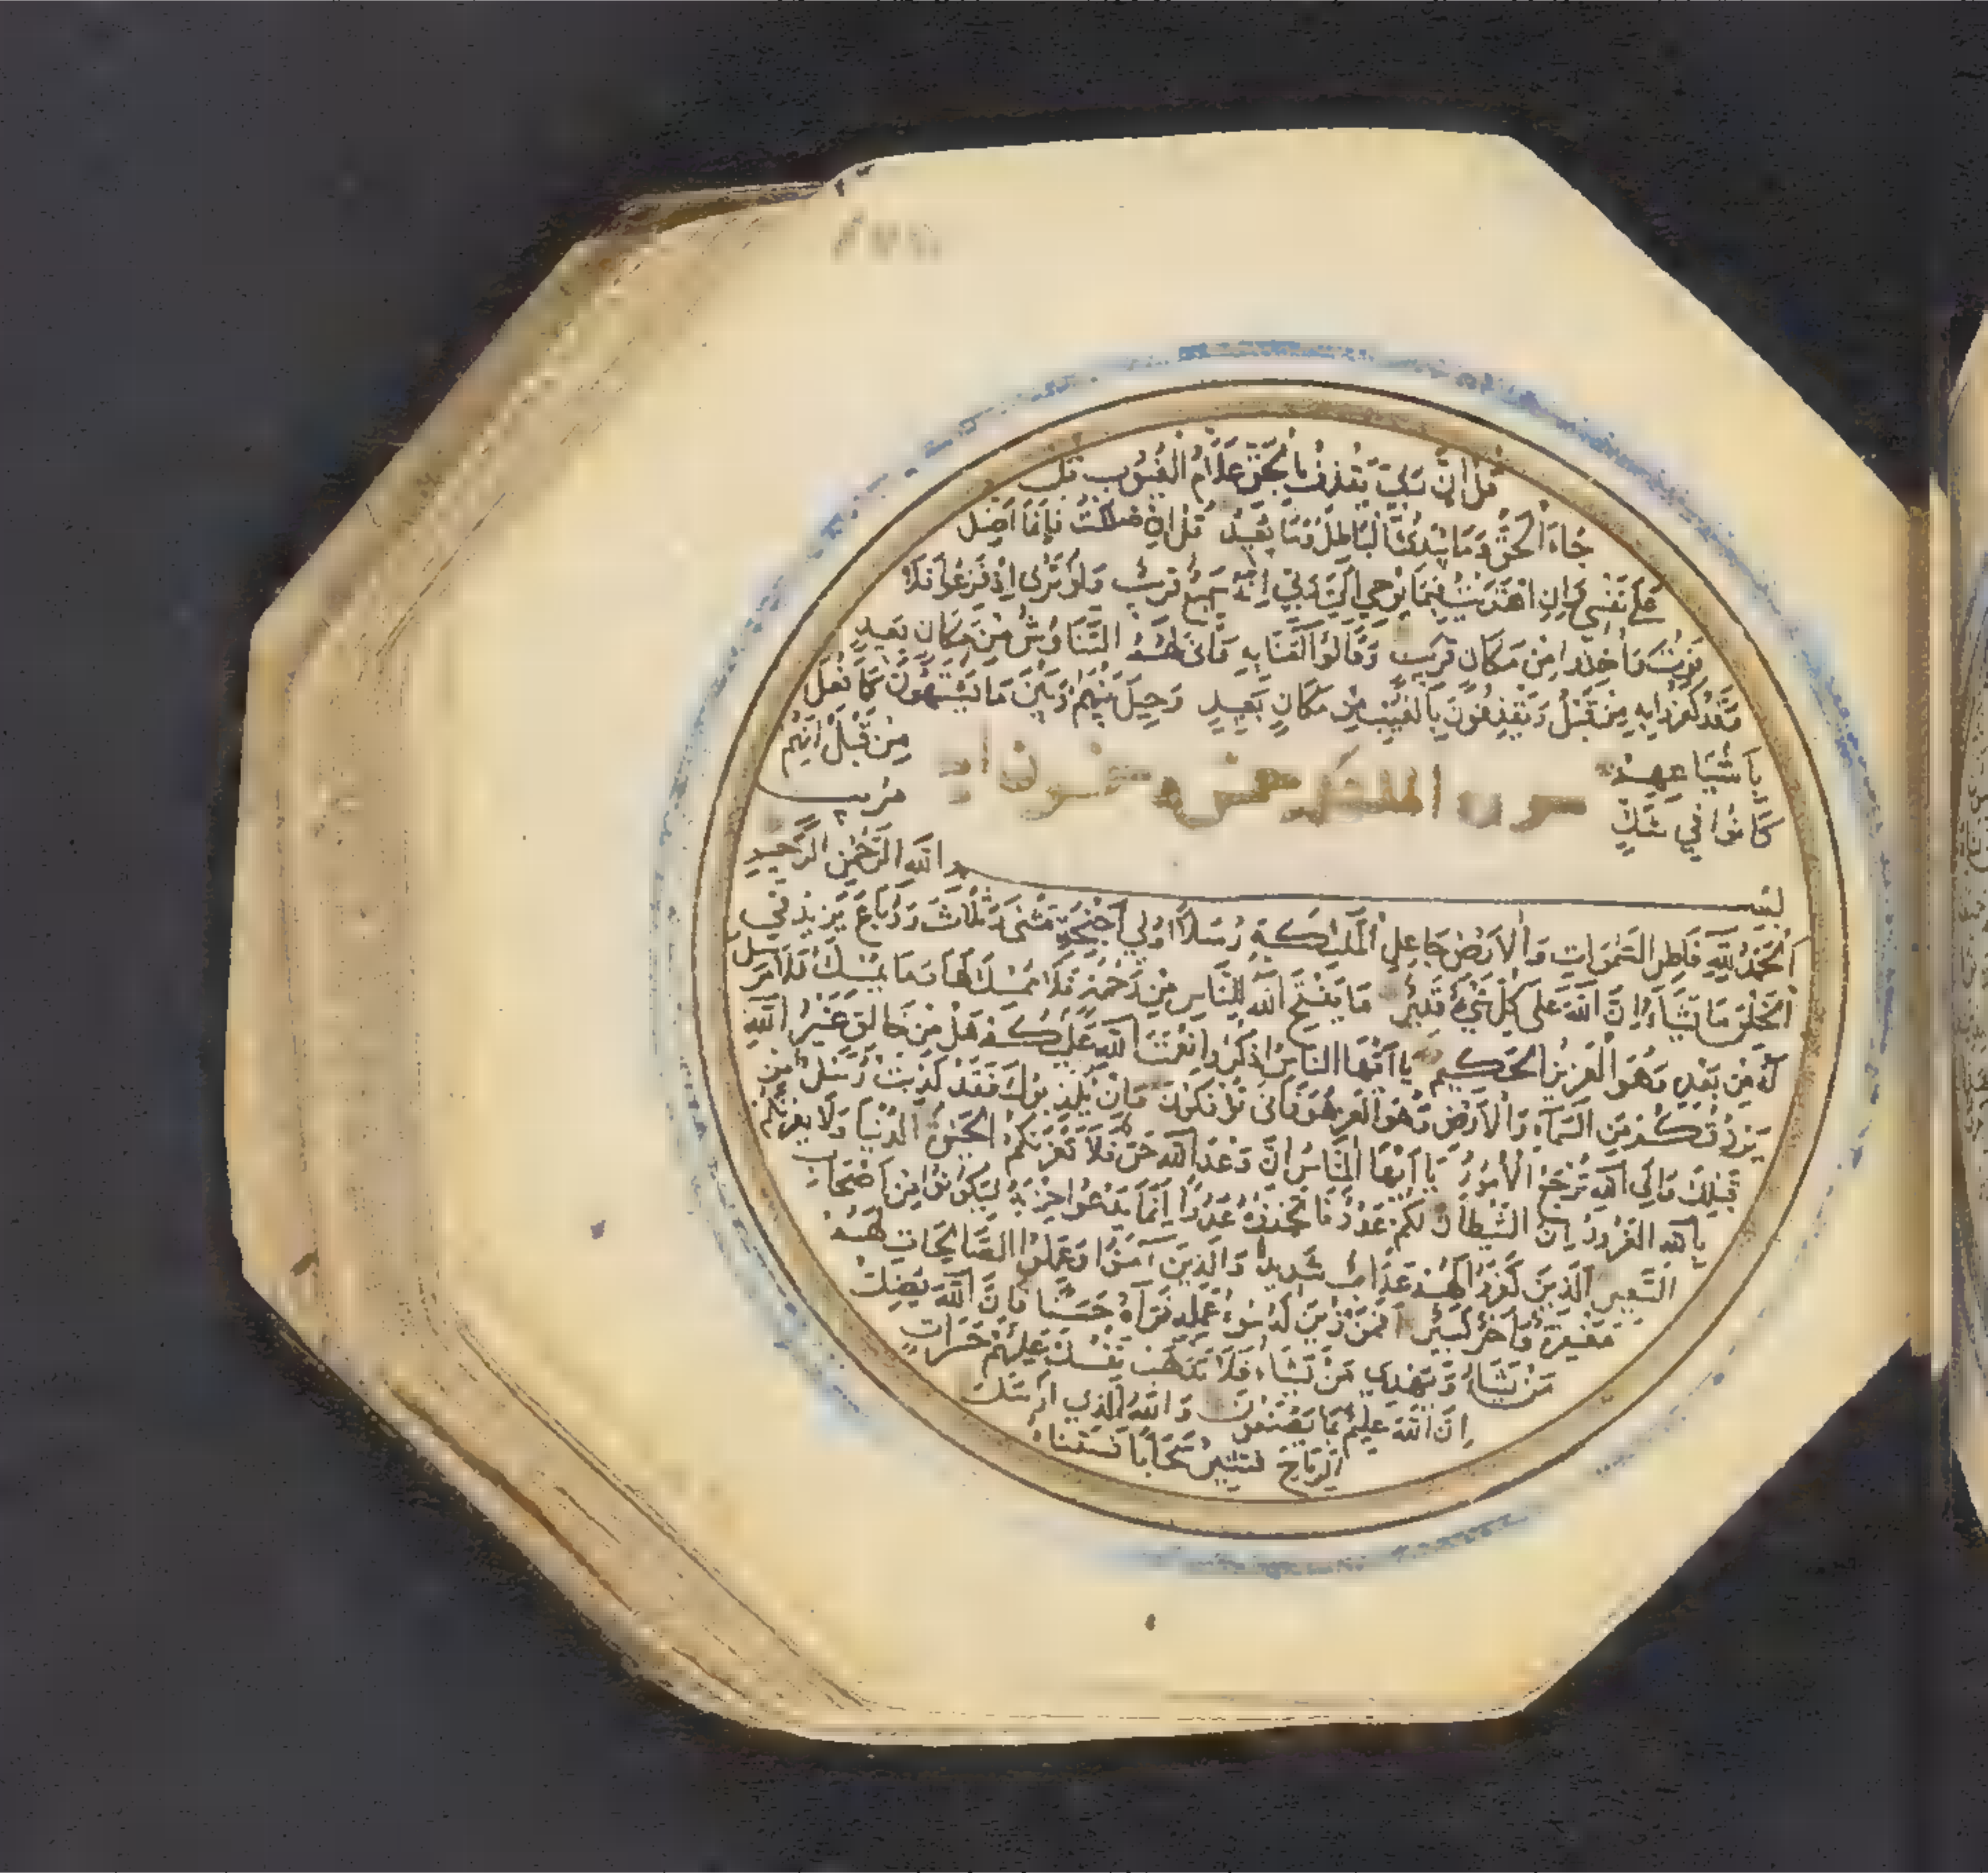 قُلْ اِنَّ رَبِّي يَقْذِفُ بِالْحَقِّ عَلَّامُ الْغُيُوبِ قُلْ
جَاءَ الْحَقُّ وَمَا يُبْدِئُ الْبَاطِلُ وَمَا يُعِيدُ قُلْ اِنْ ضَلَلْتُ فَاِنَّمَا اَضِلُّ
عَلَى نَفْسِي وَاِنِ اهْتَدَيْتُ فَبِمَا يُوحِي اِلَيَّ رَبِّي اِنَّهُ سَمِيعٌ قَرِيبٌ وَلَوْ تَرَى اِذْ فَزِعُوا فَلَا
فَوْتَ وَاُخِذُوا مِنْ مَكَانٍ قَرِيبٍ وَقَالُوا آمَنَّا بِهِ وَاَنَّى لَهُمُ التَّنَاوُشُ مِنْ مَكَانٍ بَعِيدٍ
وَقَدْ كَفَرُوا بِهِ مِنْ قَبْلُ وَيَقْذِفُونَ بِالْغَيْبِ مِنْ مَكَانٍ بَعِيدٍ وَحِيلَ بَيْنَهُمْ وَبَيْنَ مَا يَشْتَهُونَ كَمَا فُعِلَ
بِاَشْيَاعِهِمْ مِنْ قَبْلُ اِنَّهُمْ
كَانُوا فِي شَكٍّ مُرِيبٍ
بِسْمِ اللّٰهِ الرَّحْمٰنِ الرَّحِيمِ
اَلْحَمْدُ لِلّٰهِ فَاطِرِ السَّمٰوَاتِ وَالْاَرْضِ جَاعِلِ الْمَلٰئِكَةِ رُسُلًا اُولِي اَجْنِحَةٍ مَثْنَى وَثُلَاثَ وَرُبَاعَ يَزِيدُ فِي
الْخَلْقِ مَا يَشَاءُ اِنَّ اللّٰهَ عَلَى كُلِّ شَيْءٍ قَدِيرٌ مَا يَفْتَحِ اللّٰهُ لِلنَّاسِ مِنْ رَحْمَةٍ فَلَا مُمْسِكَ لَهَا وَمَا يُمْسِكْ فَلَا مُرْسِلَ
لَهُ مِنْ بَعْدِهِ وَهُوَ الْعَزِيزُ الْحَكِيمُ يَا اَيُّهَا النَّاسُ اذْكُرُوا نِعْمَتَ اللّٰهِ عَلَيْكُمْ هَلْ مِنْ خَالِقٍ غَيْرُ اللّٰهِ
يَرْزُقُكُمْ مِنَ السَّمَاءِ وَالْاَرْضِ هُوَ فَاَنَّى تُؤْفَكُونَ وَاِنْ يُكَذِّبُوكَ فَقَدْ كُذِّبَتْ رُسُلٌ مِنْ
قَبْلِكَ وَاِلَى اللّٰهِ تُرْجَعُ الْاُمُورُ يَا اَيُّهَا النَّاسُ اِنَّ وَعْدَ اللّٰهِ حَقٌّ فَلَا تَغُرَّنَّكُمُ الْحَيٰوةُ الدُّنْيَا وَلَا يَغُرَّنَّكُمْ
بِاللّٰهِ الْغَرُورُ اِنَّ الشَّيْطَانَ لَكُمْ عَدُوٌّ فَاتَّخِذُوهُ عَدُوًّا اِنَّمَا يَدْعُوا حِزْبَهُ لِيَكُونُوا مِنْ اَصْحَابِ
السَّعِيرِ اَلَّذِينَ كَفَرُوا لَهُمْ عَذَابٌ شَدِيدٌ وَالَّذِينَ آمَنُوا وَعَمِلُوا الصَّالِحَاتِ لَهُمْ
مَغْفِرَةٌ وَاَجْرٌ كَبِيرٌ اَفَمَنْ زُيِّنَ لَهُ سُوءُ عَمَلِهِ فَرَآهُ حَسَنًا فَاِنَّ اللّٰهَ يُضِلُّ
مَنْ يَشَاءُ وَيَهْدِي مَنْ يَشَاءُ فَلَا تَذْهَبْ نَفْسُكَ عَلَيْهِمْ حَسَرَاتٍ
اِنَّ اللّٰهَ عَلِيمٌ بِمَا يَصْنَعُونَ وَاللّٰهُ الَّذِي اَرْسَلَ
الرِّيَاحَ فَتُثِيرُ سَحَابًا فَسُقْنَاهُ